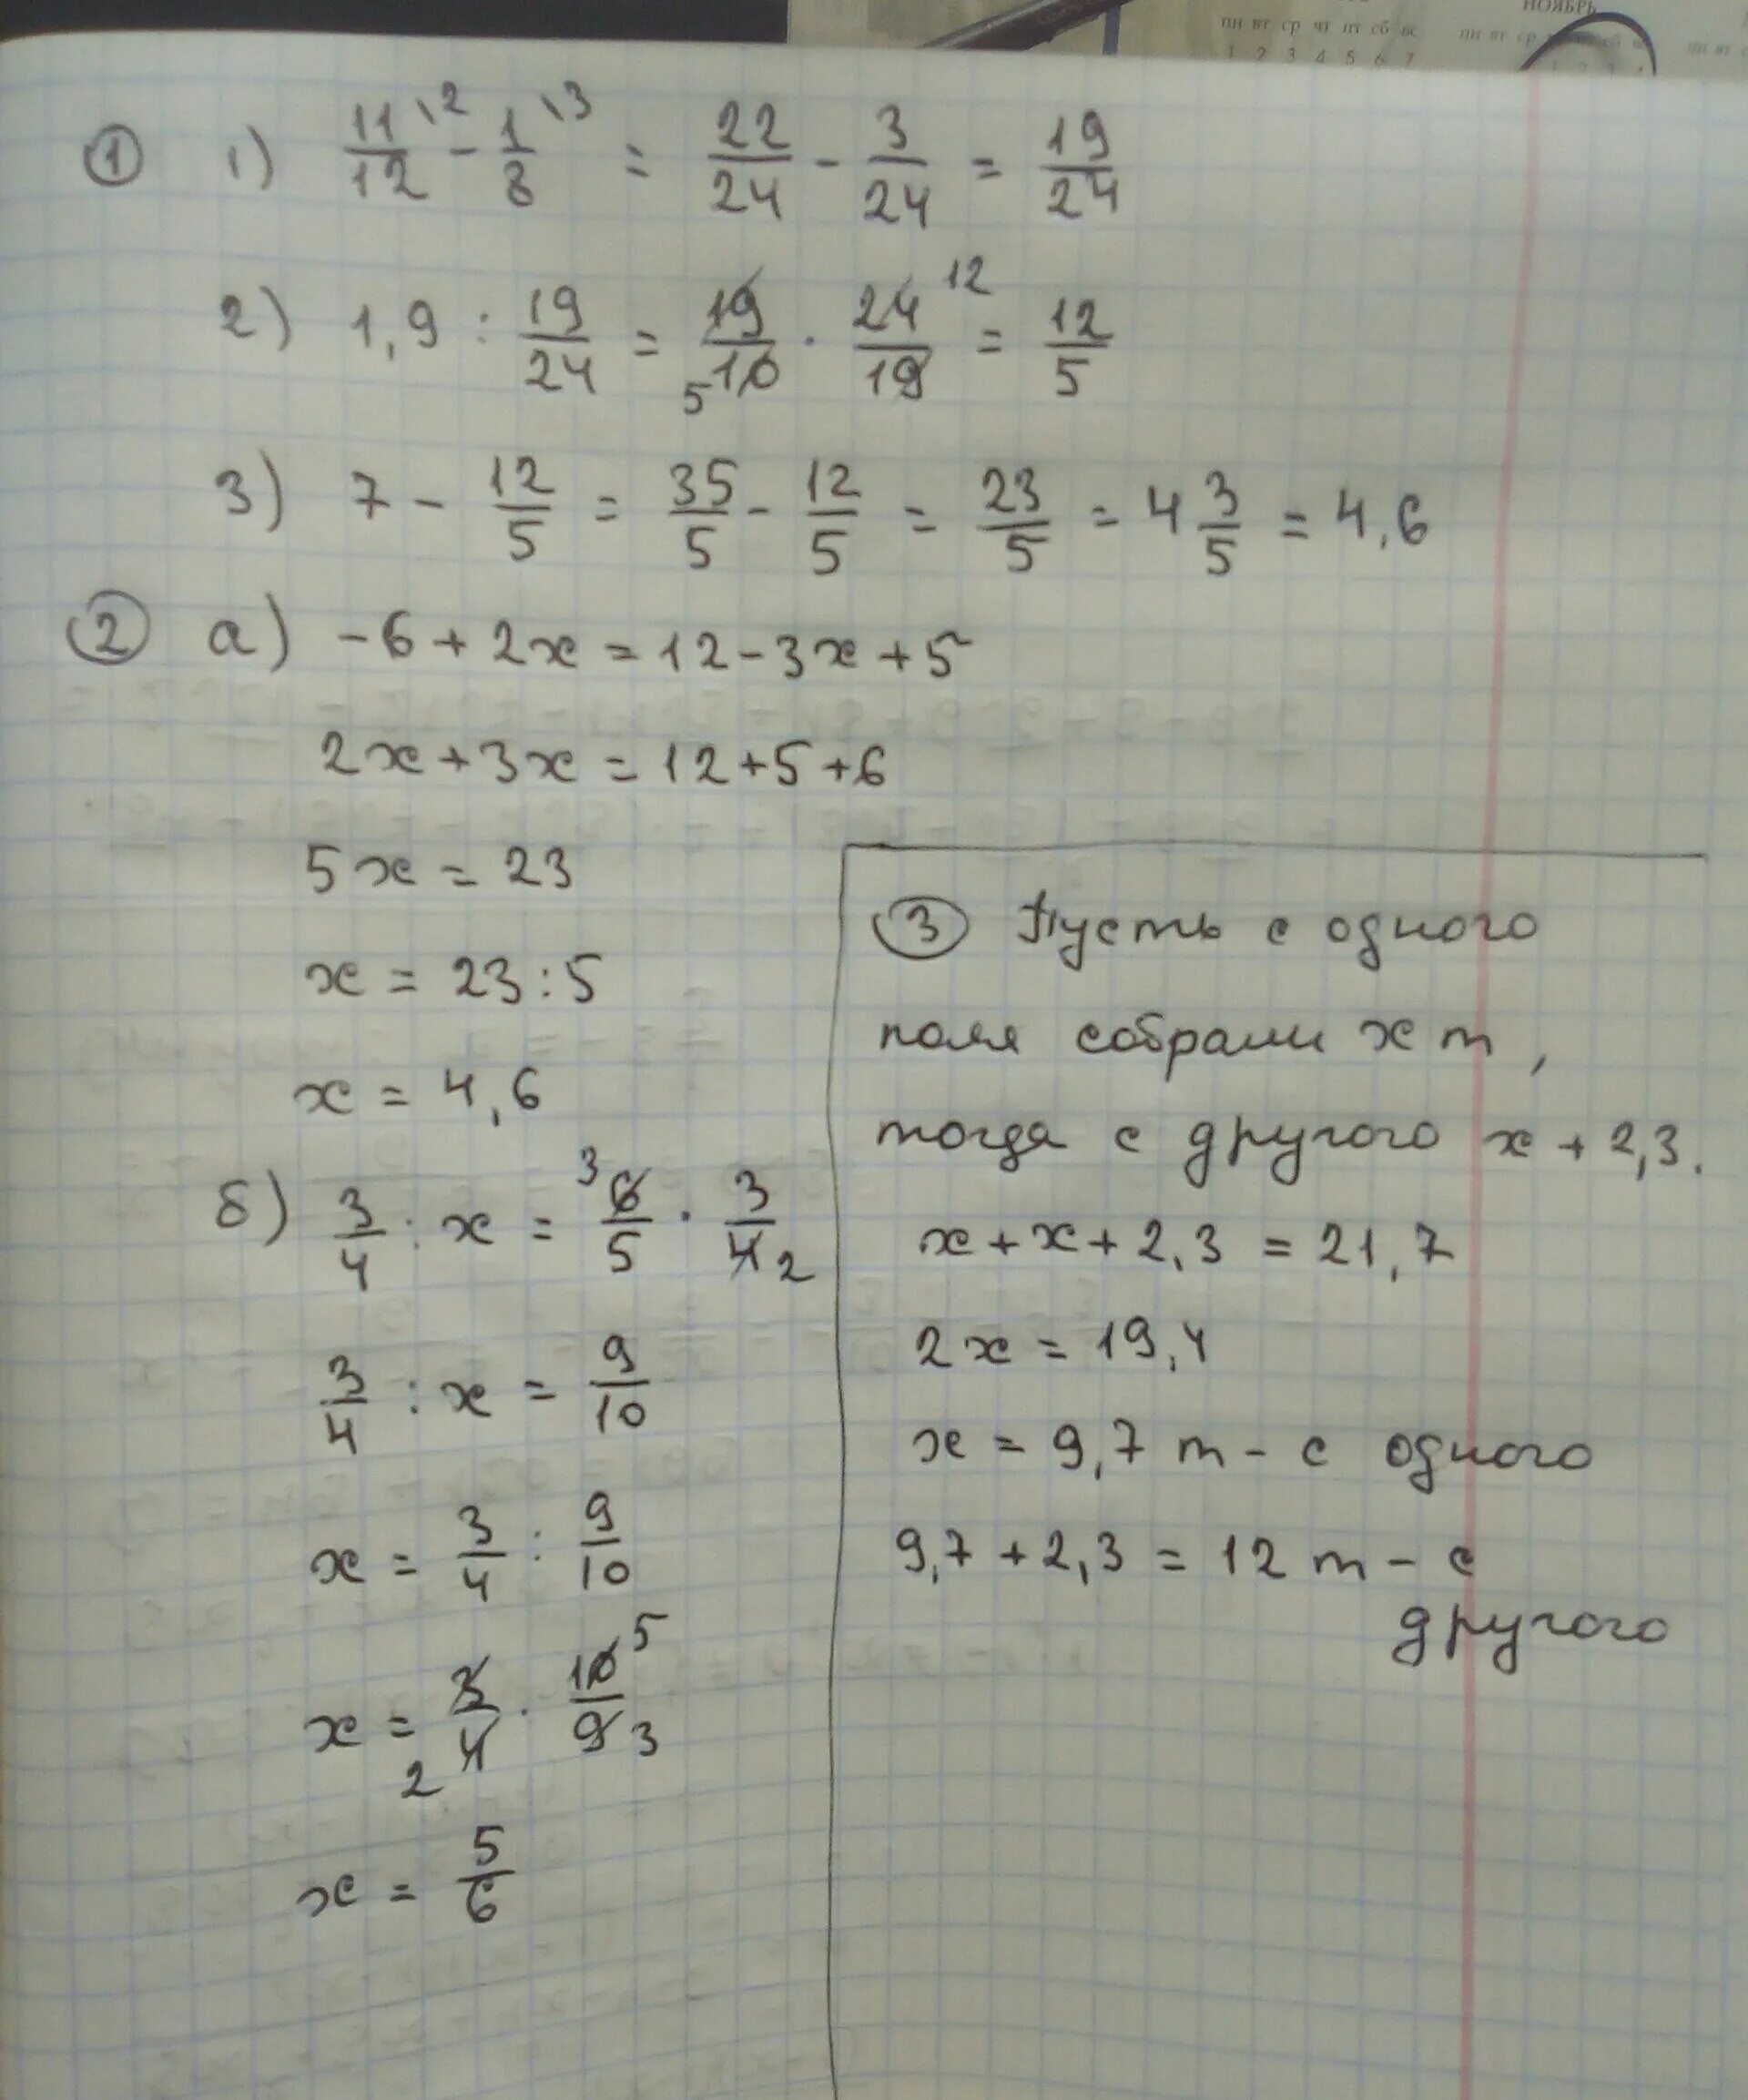 НОЯБРЬ
пн вт ср чт пт сб вс
1 2 3 4 5 6 7
① 1) 11/12 \2 - 1/8 \3 = 22/24 - 3/24 = 19/24
2) 1,9 : 19/24 = 19/10 5 · 24/19 12 = 12/5
3) 7 - 12/5 = 35/5 - 12/5 = 23/5 = 4 3/5 = 4,6
② а) -6 + 2x = 12 - 3x + 5
2x + 3x = 12 + 5 + 6
5x = 23
x = 23 : 5
x = 4,6
б) 3/4 : x = 3 6/5 · 3/4 2
3/4 : x = 9/10
x = 3/4 : 9/10
x = 3/4 2 · 10/9 5 3
x = 5/6
③ Пусть с одного
поля собрали x т,
тогда с другого x + 2,3.
x + x + 2,3 = 21,7
2x = 19,4
x = 9,7 т - с одного
9,7 + 2,3 = 12 т - с
другого